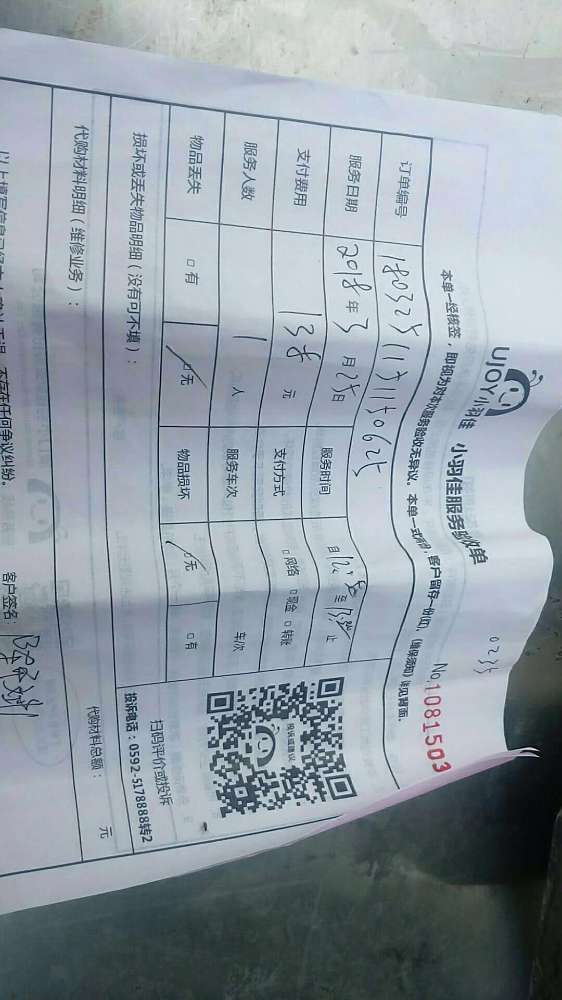 UJOY小羽佳 小羽佳服务验收单
0235
本单一经核签，即视为对本次服务验收无异议。本单一式两份，客户留存一份。《维保须知》详见背面。
No.1081503
订单编号 1803251131150625
服务日期 2018年3月25日 服务时间
支付费用 138元 支付方式 □网络 □现金 □转账
服务人数 1人 服务车次 车次
物品丢失 □有 □无 物品损坏 □无 □有
投诉或建议
扫码评价或投诉
投诉电话：0592-5178888转2
损坏或丢失物品明细（没有可不填）：
代购材料明细（维修业务）：
代购材料总额： 元
不存在任何争议纠纷。
客户签名：